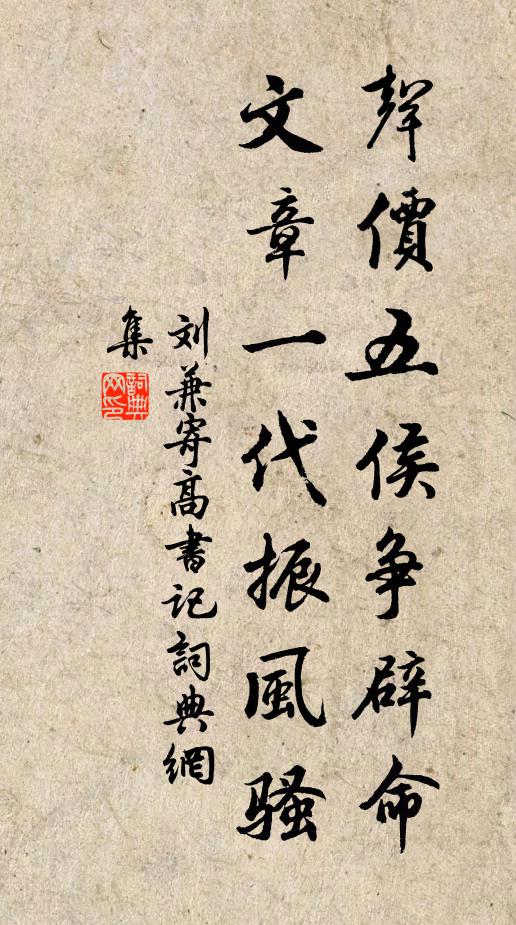 聲價五侯争辟命
文章一代振風騷
刘兼寄高書记詞典網
集
詞典
网印